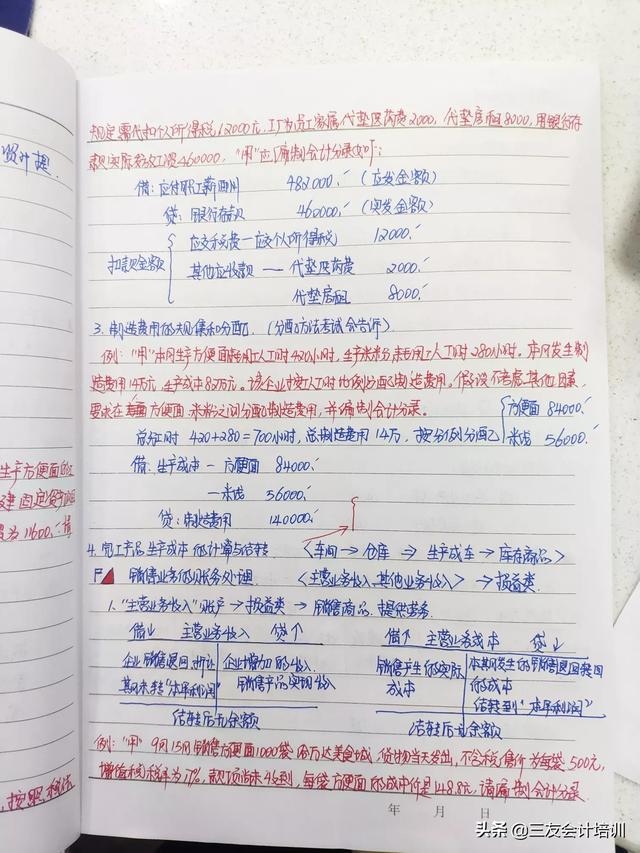 贸计提.
规定需代扣个人所得税12000元,工厂为员工家属代垫医药费2000,代垫房租8000,用银行存
款实际发放工资460000,"甲"应编制会计分录如下:
借:应付职工薪酬 482000.- (应发金额)
贷:银行存款 460000.- (实发金额)
应交税费—应交个人所得税 12000.-
扣款金额 其他应收款 — 代垫医药费 2000.-
代垫房租 8000.-
3.制造费用的归集和分配.(分配方法考试会告诉)
例:"甲"本月生产方便面耗用工人工时420小时,生产米线耗用工人工时280小时,本月发生制
造费用14万元,生产成本82万元.该企业按工人工时比例分配制造费用.假设不考虑其他因素,
要求在方便面、米线之间分配制造费用,并编制会计分录.
方便面 84000.-
总工时 420+280=700小时,总制造费用14万,按分例分配 米线 56000.-
借:生产成本 — 方便面 84000.-
—米线 56000.-
贷:制造费用 140000.-
生产方便面的
4.完工产品生产成本的计算与结转 <车间→仓库→生产成本→库存商品>
为11600.-
F 销售业务的账务处理 <主营业务收入、其他业务收入>→损益类
1."主营业务收入"账户→损益类→销售商品、提供劳务
借↓ 主营业务收入 贷↑ 借↑ 主营业务成本 贷↓
企业销售退回、折让 企业增加的收入. 销售产生的实际 本期发生的销售退回转回
期末转"本年利润" 销售产品实现收入 成本 的成本
结转到"本年利润"
结转后无余额 结转后无余额
例:"甲"9月15日销售方便面1000袋给万达美食城,货物当天发出,不含税售价为每袋500元,
增值税税率为17%,款项尚未收到,每袋方便面的成本价是148.8元,请编制会计分录.
按照税法
年 月 日
头条@三友会计培训